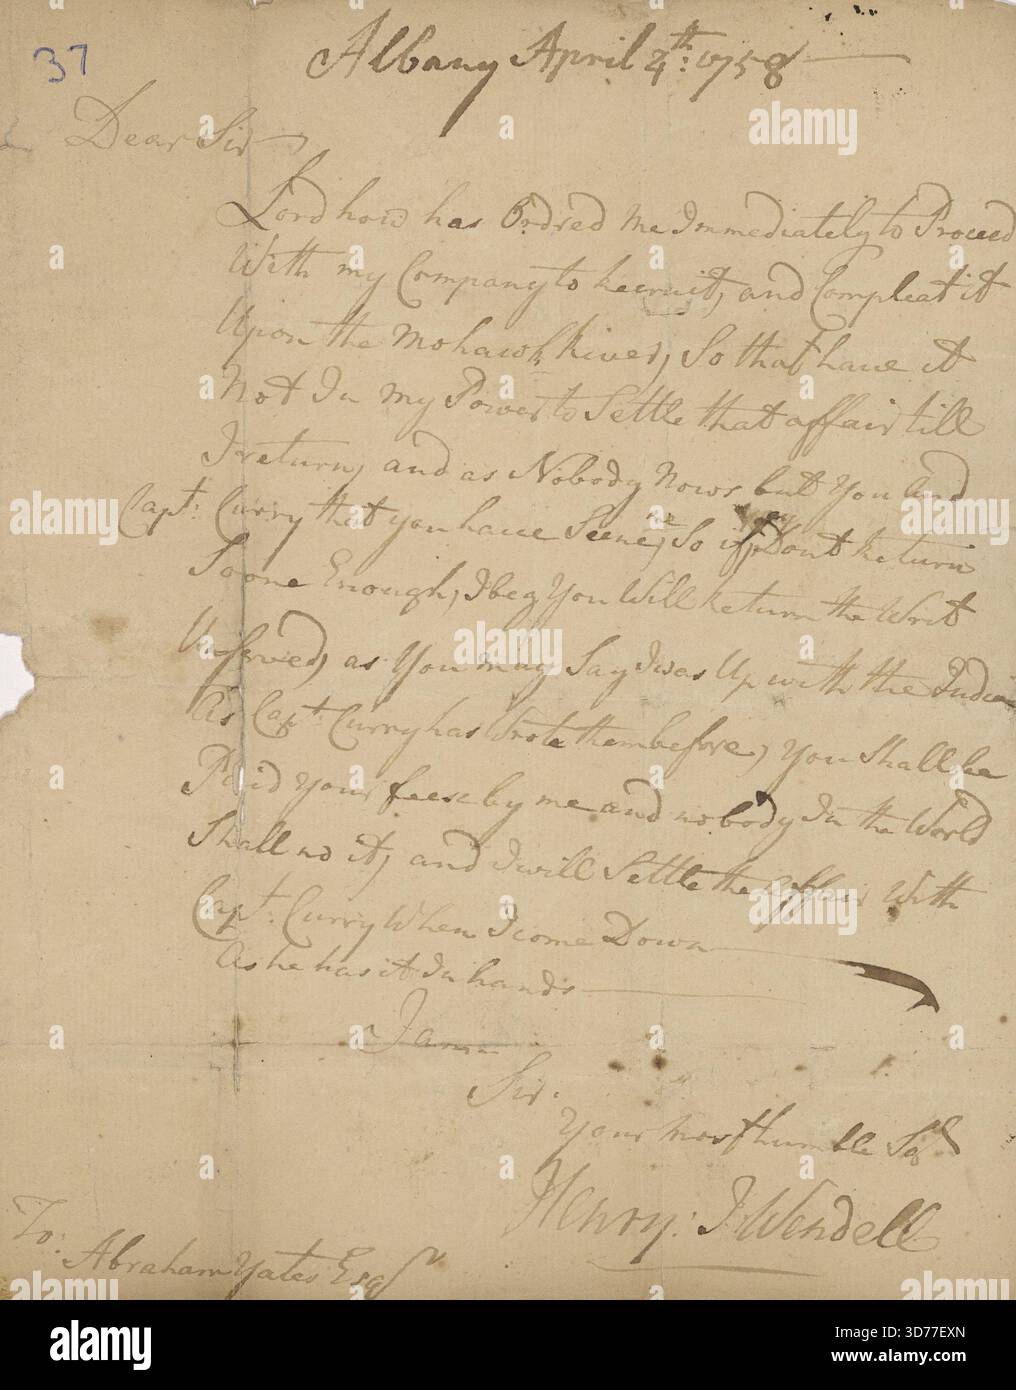 37
Albany April 4th: 1758
Dear Sir
Lord how has Ordred Me Immediately to Proceed
With my Company to Recruit, and Compleat it
Upon the Mohawk River, So that have it
Not In my Power to Settle that affair till
I return, and as Nobody Nows but You and
Capt: Curry that you have Seene me, So if I Dont Return
Soone Enough, I beg You Will Return the Writ
Unserved, as You may Say I was Up with the Indian
As Capt: Curry has Wrote them before, You Shall be
Paid your feese by me and nobody In the World
Shall no it, and I will Settle the Affair With
Capt: Curry When I come Down
As he has it In hands
I am
Sir.
Your most humble Sert
Henry: J: Wendell
To:
Abraham Yates Esqr
alamy
Image ID: 3D77EXN
www.alamy.com